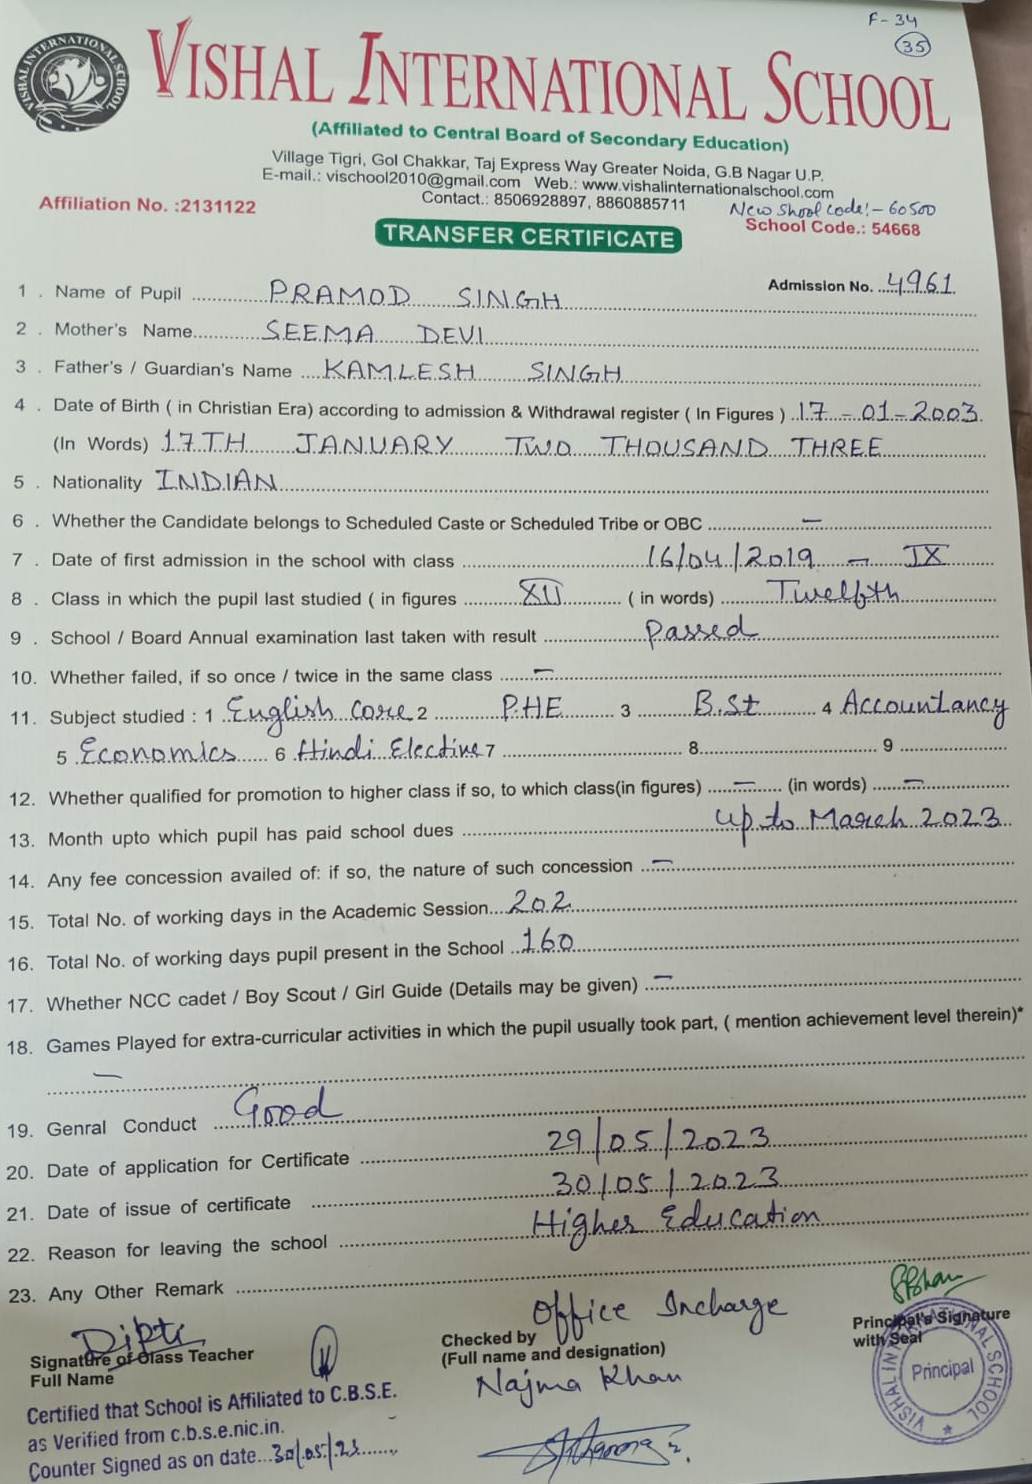 F-34
35
VISHAL INTERNATIONAL SCHOOL
VISHAL INTERNATIONAL SCHOOL
(Affiliated to Central Board of Secondary Education)
Village Tigri, Gol Chakkar, Taj Express Way Greater Noida, G.B Nagar U.P.
E-mail.: vischool2010@gmail.com Web.: www.vishalinternationalschool.com
Contact.: 8506928897, 8860885711
New Shool Code:- 60500
Affiliation No. :2131122
School Code.: 54668
TRANSFER CERTIFICATE
Admission No. 4961
1 . Name of Pupil PRAMOD SINGH
2 . Mother's Name SEEMA DEVI
3 . Father's / Guardian's Name KAMLESH SINGH
4 . Date of Birth ( in Christian Era) according to admission & Withdrawal register ( In Figures ) 17-01-2003
(In Words) 17TH JANUARY TWO THOUSAND THREE
5 . Nationality INDIAN
6 . Whether the Candidate belongs to Scheduled Caste or Scheduled Tribe or OBC —
7 . Date of first admission in the school with class 16/04/2019 — IX
8 . Class in which the pupil last studied ( in figures XII ( in words) Twelfth
9 . School / Board Annual examination last taken with result Passed
10. Whether failed, if so once / twice in the same class —
11. Subject studied : 1 English Core 2 PHE 3 B.St 4 Accountancy
5 Economics 6 Hindi Elective 7 8 9
12. Whether qualified for promotion to higher class if so, to which class(in figures) — (in words) —
13. Month upto which pupil has paid school dues up to March 2023
14. Any fee concession availed of: if so, the nature of such concession —
15. Total No. of working days in the Academic Session 202
16. Total No. of working days pupil present in the School 160
17. Whether NCC cadet / Boy Scout / Girl Guide (Details may be given) —
18. Games Played for extra-curricular activities in which the pupil usually took part, ( mention achievement level therein)*
—
19. Genral Conduct Good
20. Date of application for Certificate 29/05/2023
21. Date of issue of certificate 30/05/2023
22. Reason for leaving the school Higher Education
23. Any Other Remark
Dipti
Signature of Class Teacher
Full Name
Office Incharge
Checked by
(Full name and designation)
Najma Khan
Principal's Signature
with Seal
VISHAL INTERNATIONAL SCHOOL
Principal
Certified that School is Affiliated to C.B.S.E.
as Verified from c.b.s.e.nic.in.
Counter Signed as on date...30/05/23